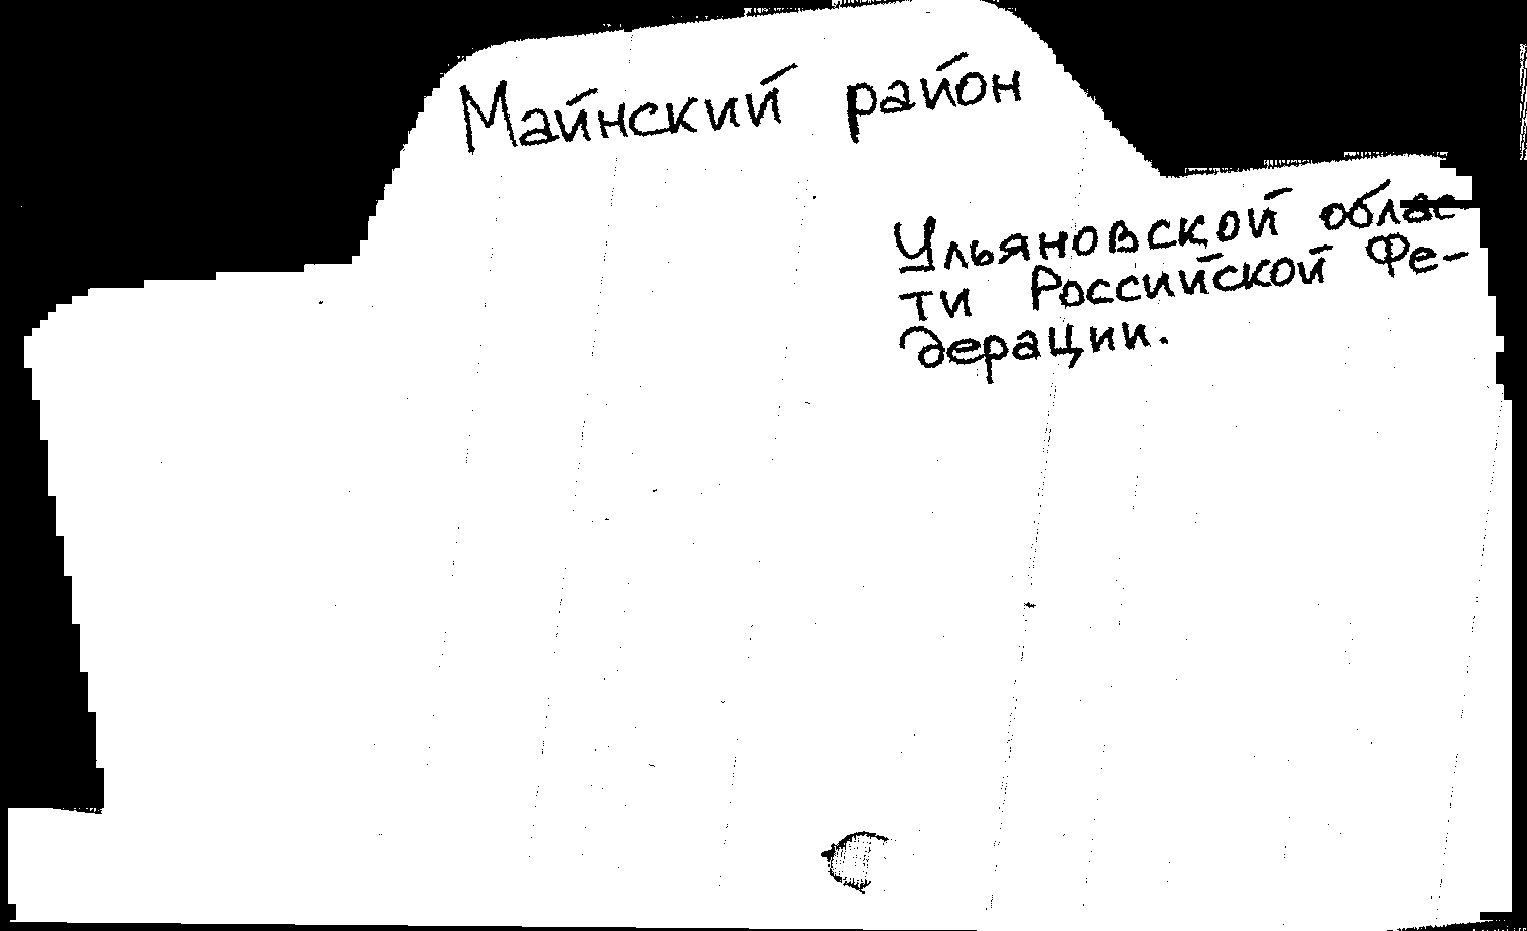 Майнский район
Ульяновской облас-
ти Российской Фе-
дерации.